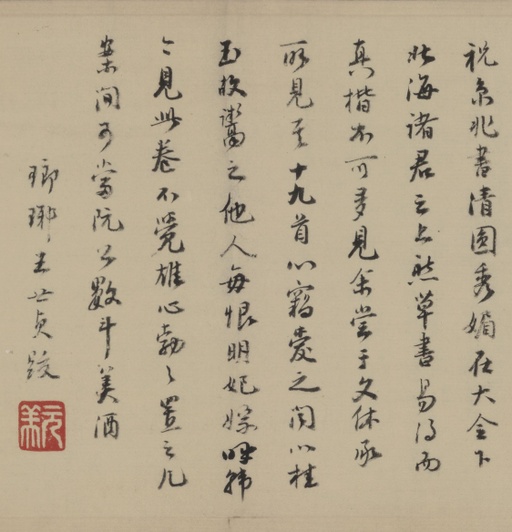 祝京兆書清圓秀媚在大令下
北海諸君之上然草書易得而
真楷不可多見余嘗于文休承
所見其十九首心竊愛之間以桂
玉故鬻之他人每恨明妃嫁呼韓
今見此卷不覺雄心勃〻置之几
案間可當阮公數斗美酒
瑯琊王世貞跋
元美